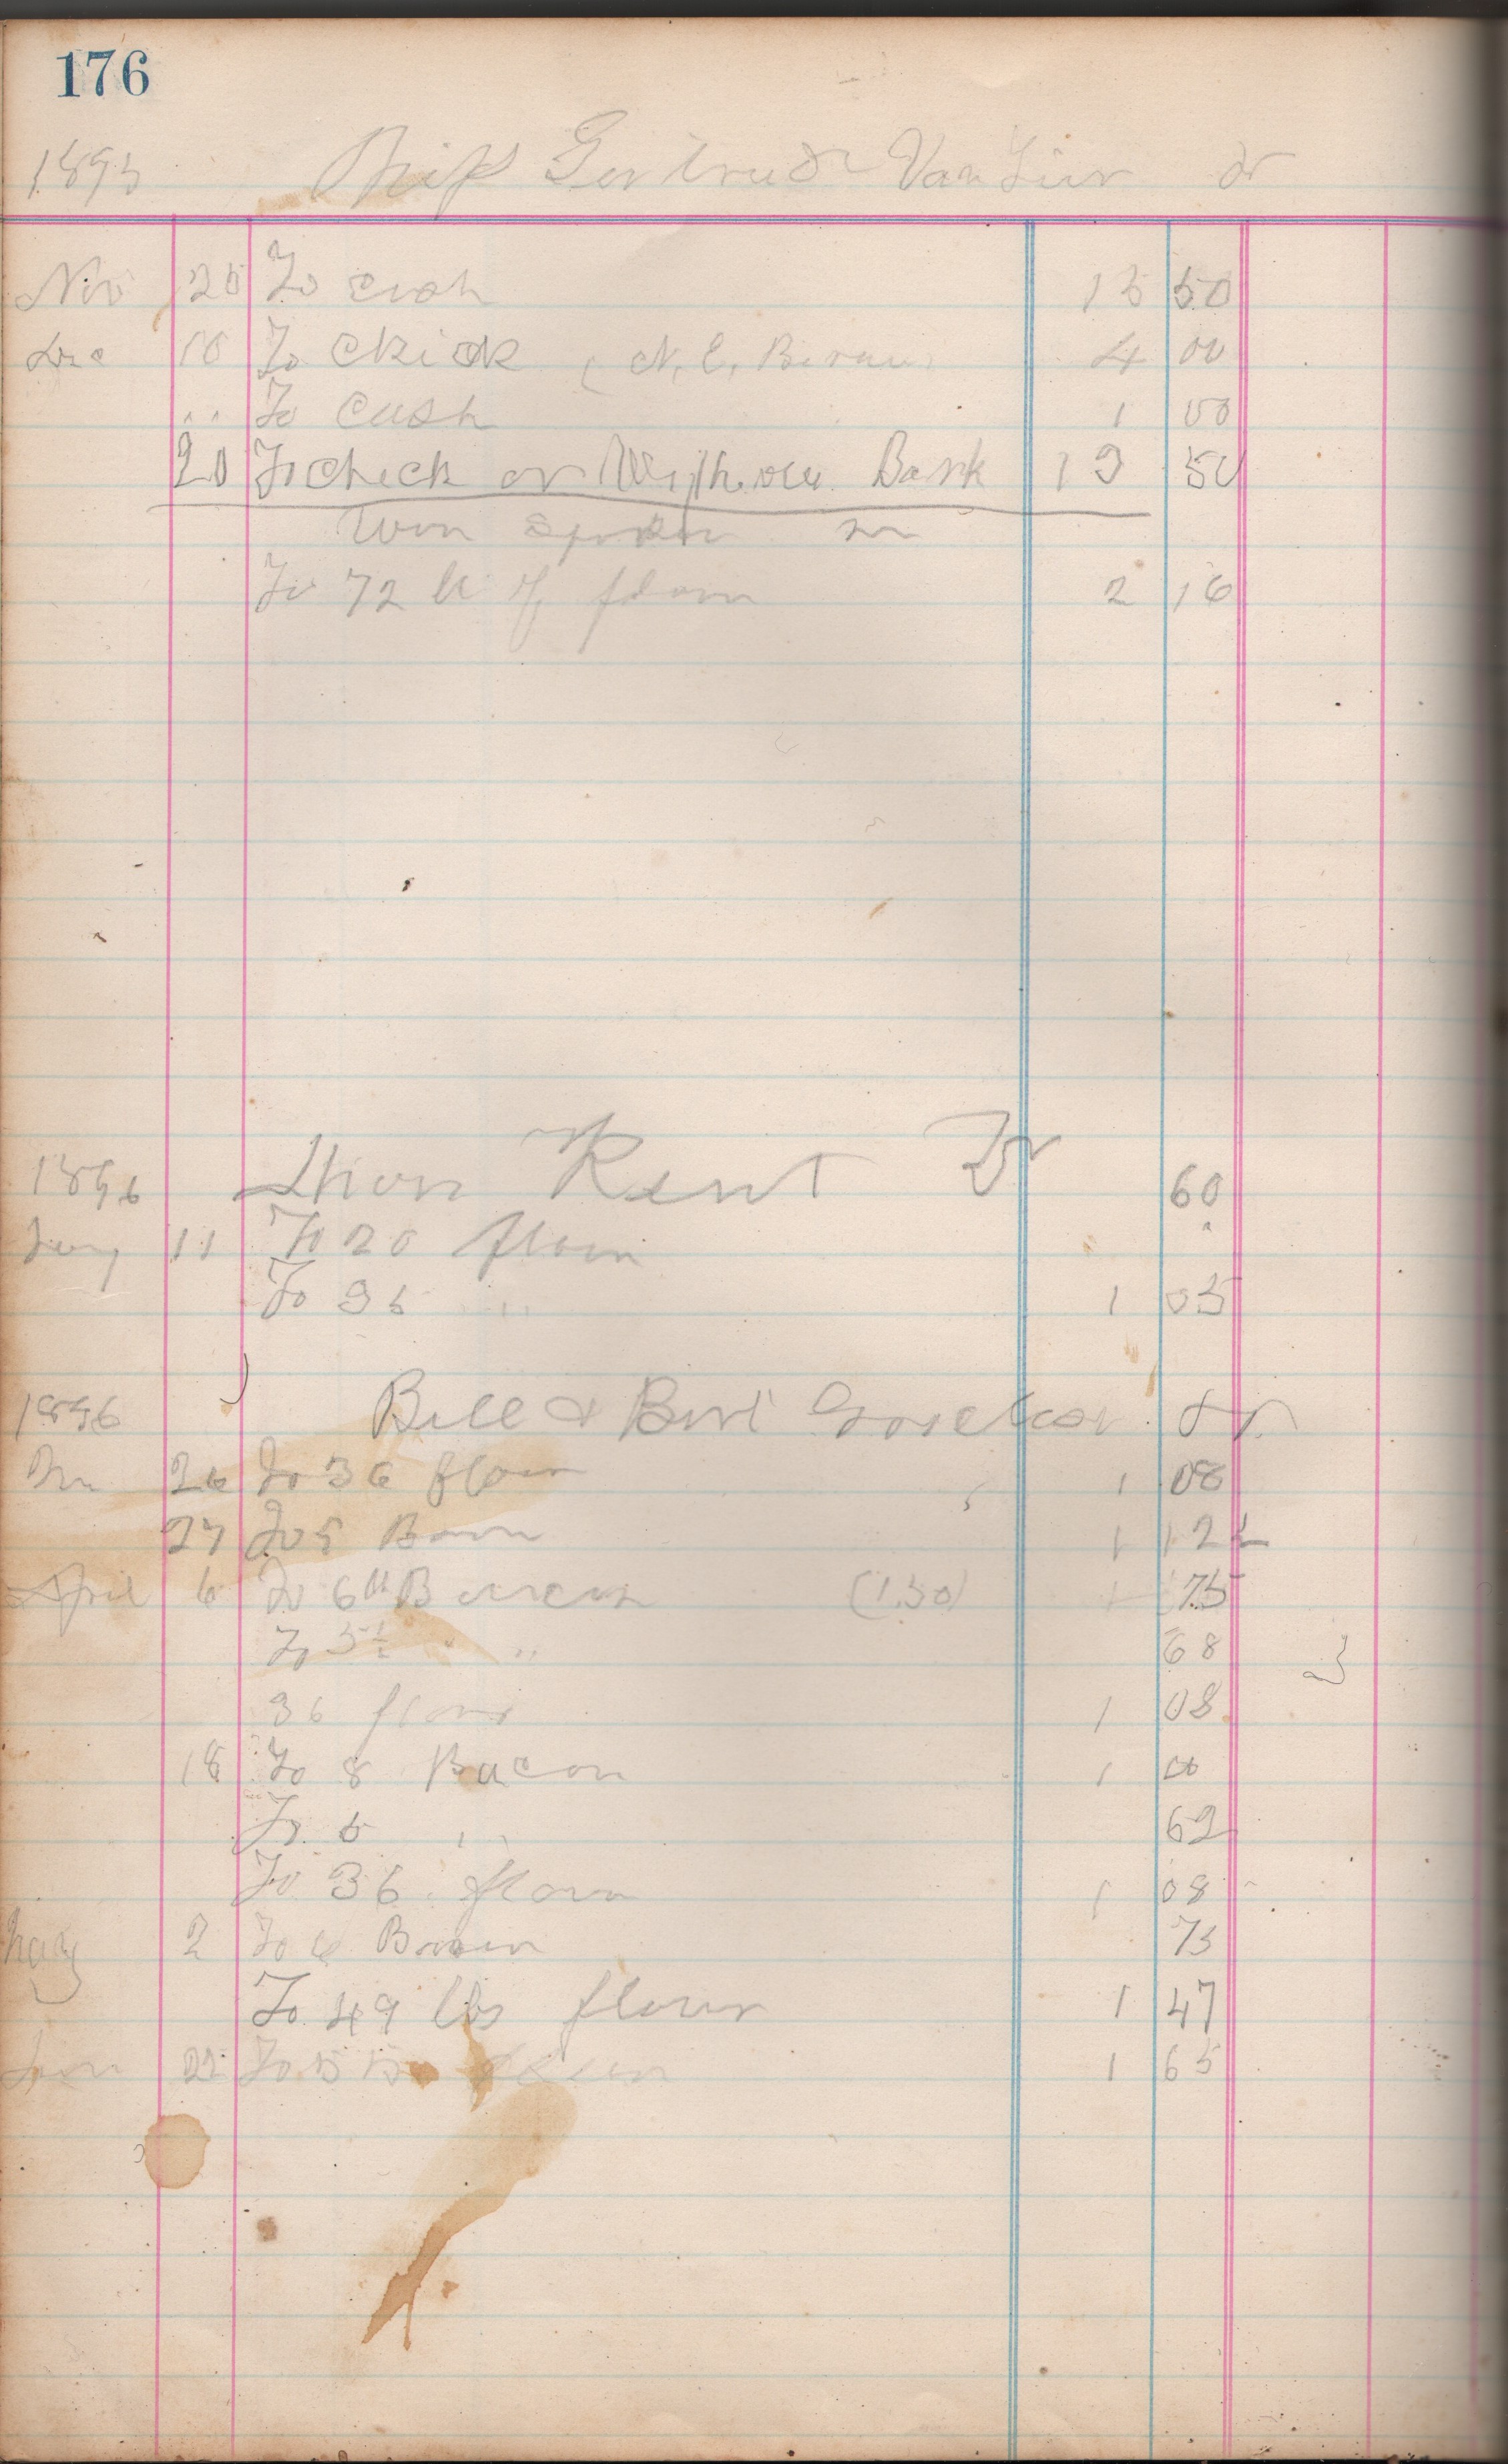 176
1895 Miss Gertrude Van Lier Dr
Nov 25 To cash 13 50
Dec 10 To check ( N. C. 4 00
" To Cash 1 00
20 To check on Bank 13 50
Wm Dr
To 72 lb of flour 2 16
1896 Rent Dr 60
11 To 20 flour
To 35 " 1 05
1896 Bill & Bert Dr
26 To 36 flour 1 08
27 To 9 Bacon 1 12 ½
April 6 To 6 lb Bacon (1.50) 75
To 5½ " " 68
36 flour 1 08
18 To 8 Bacon 1 00
To 5 " 62
To 36 flour 1 08
May 2 To 6 Bacon 75
To 49 lbs flour 1 47
22 To 55 1 65